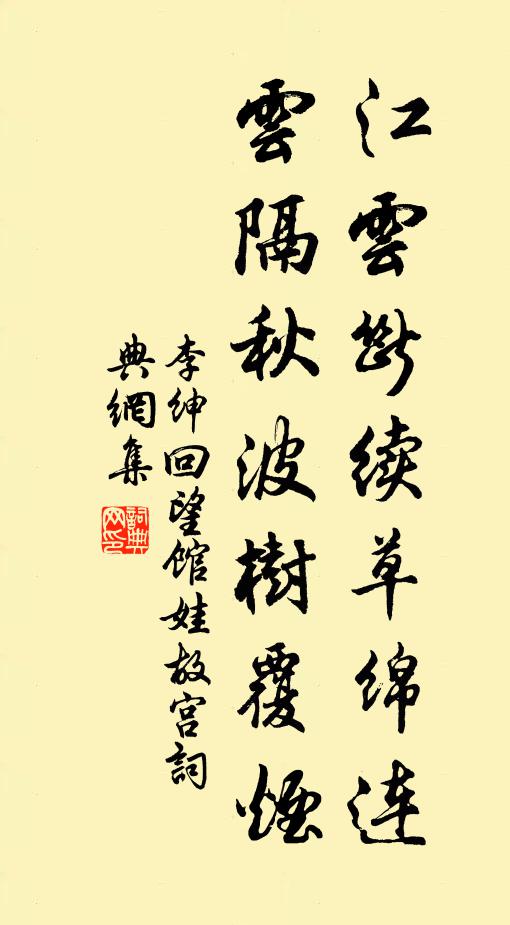 江雲斷续草綿連
雲隔秋波樹覆煙
李紳回望館娃故宫詞
典網集
詞典
网印